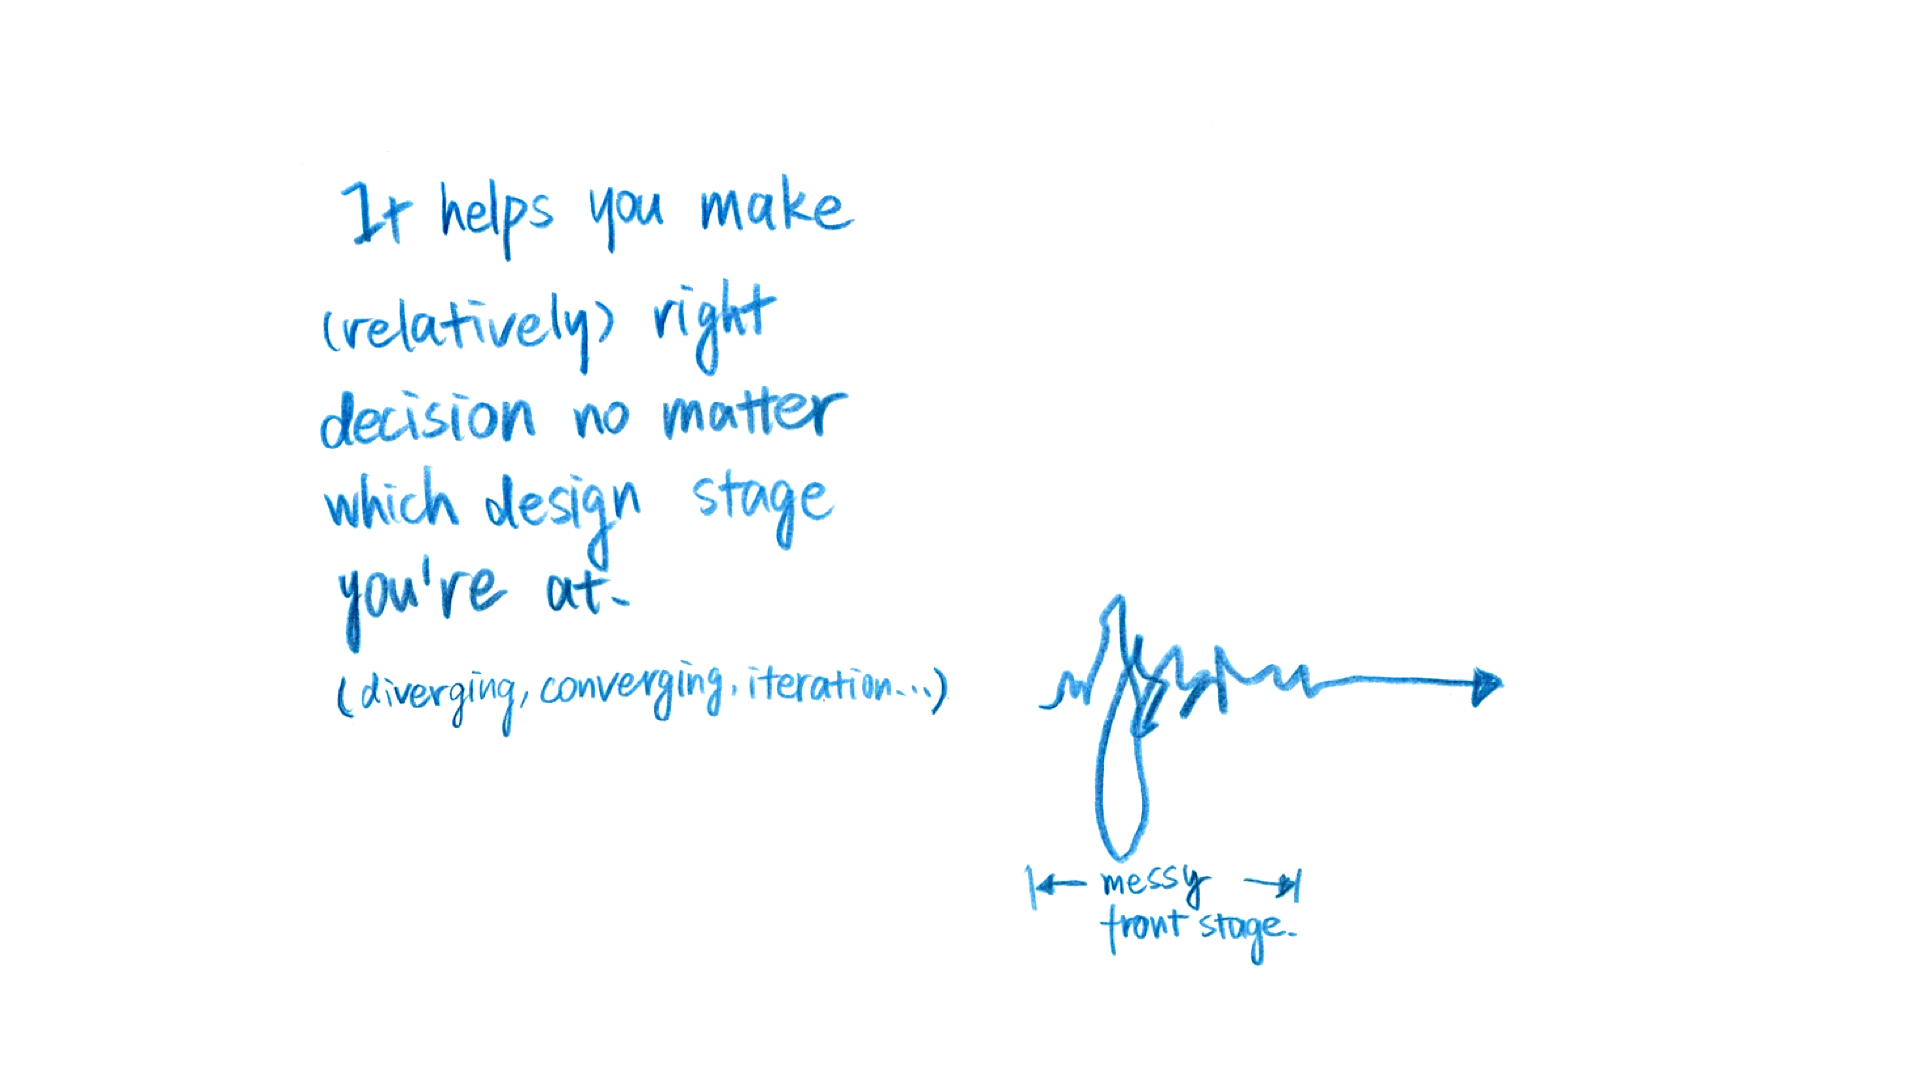 It helps you make
(relatively) right
decision no matter
which design stage
you're at.
(diverging, converging, iteration...)
messy
front stage.